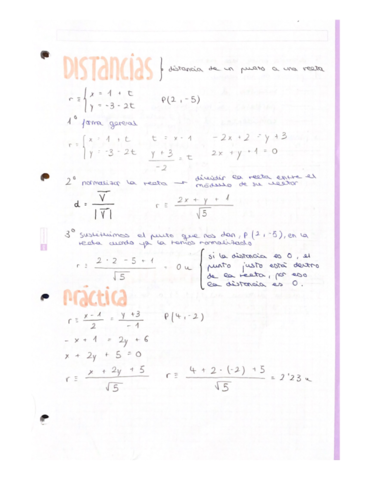 DISTANCIAS } distancia de un punto a una recta
r ≡ { x = 1 + t
y = -3 - 2t P(2, -5)
1º forma general
r = { x = 1 + t t = x - 1 -2x + 2 = y + 3
y = -3 - 2t y + 3 / -2 = t 2x + y + 1 = 0
2º normalizar la recta → dividir la recta entre el
módulo de su vector
d = V⃗ / |V⃗| r ≡ 2x + y + 1 / √5
3º sustituimos el punto que nos dan, P(2, -5), en la
recta cuando ya la tenia normalizada
r ≡ 2 · 2 - 5 + 1 / √5 = 0 u { si la distancia es 0, el
punto justo está dentro
de la recta, por eso
la distancia es 0.
práctica
r ≡ x - 1 / 2 = y + 3 / -1 P(4, -2)
- x + 1 = 2y + 6
x + 2y + 5 = 0
r ≡ x + 2y + 5 / √5 r ≡ 4 + 2 · (-2) + 5 / √5 = 2'23 u